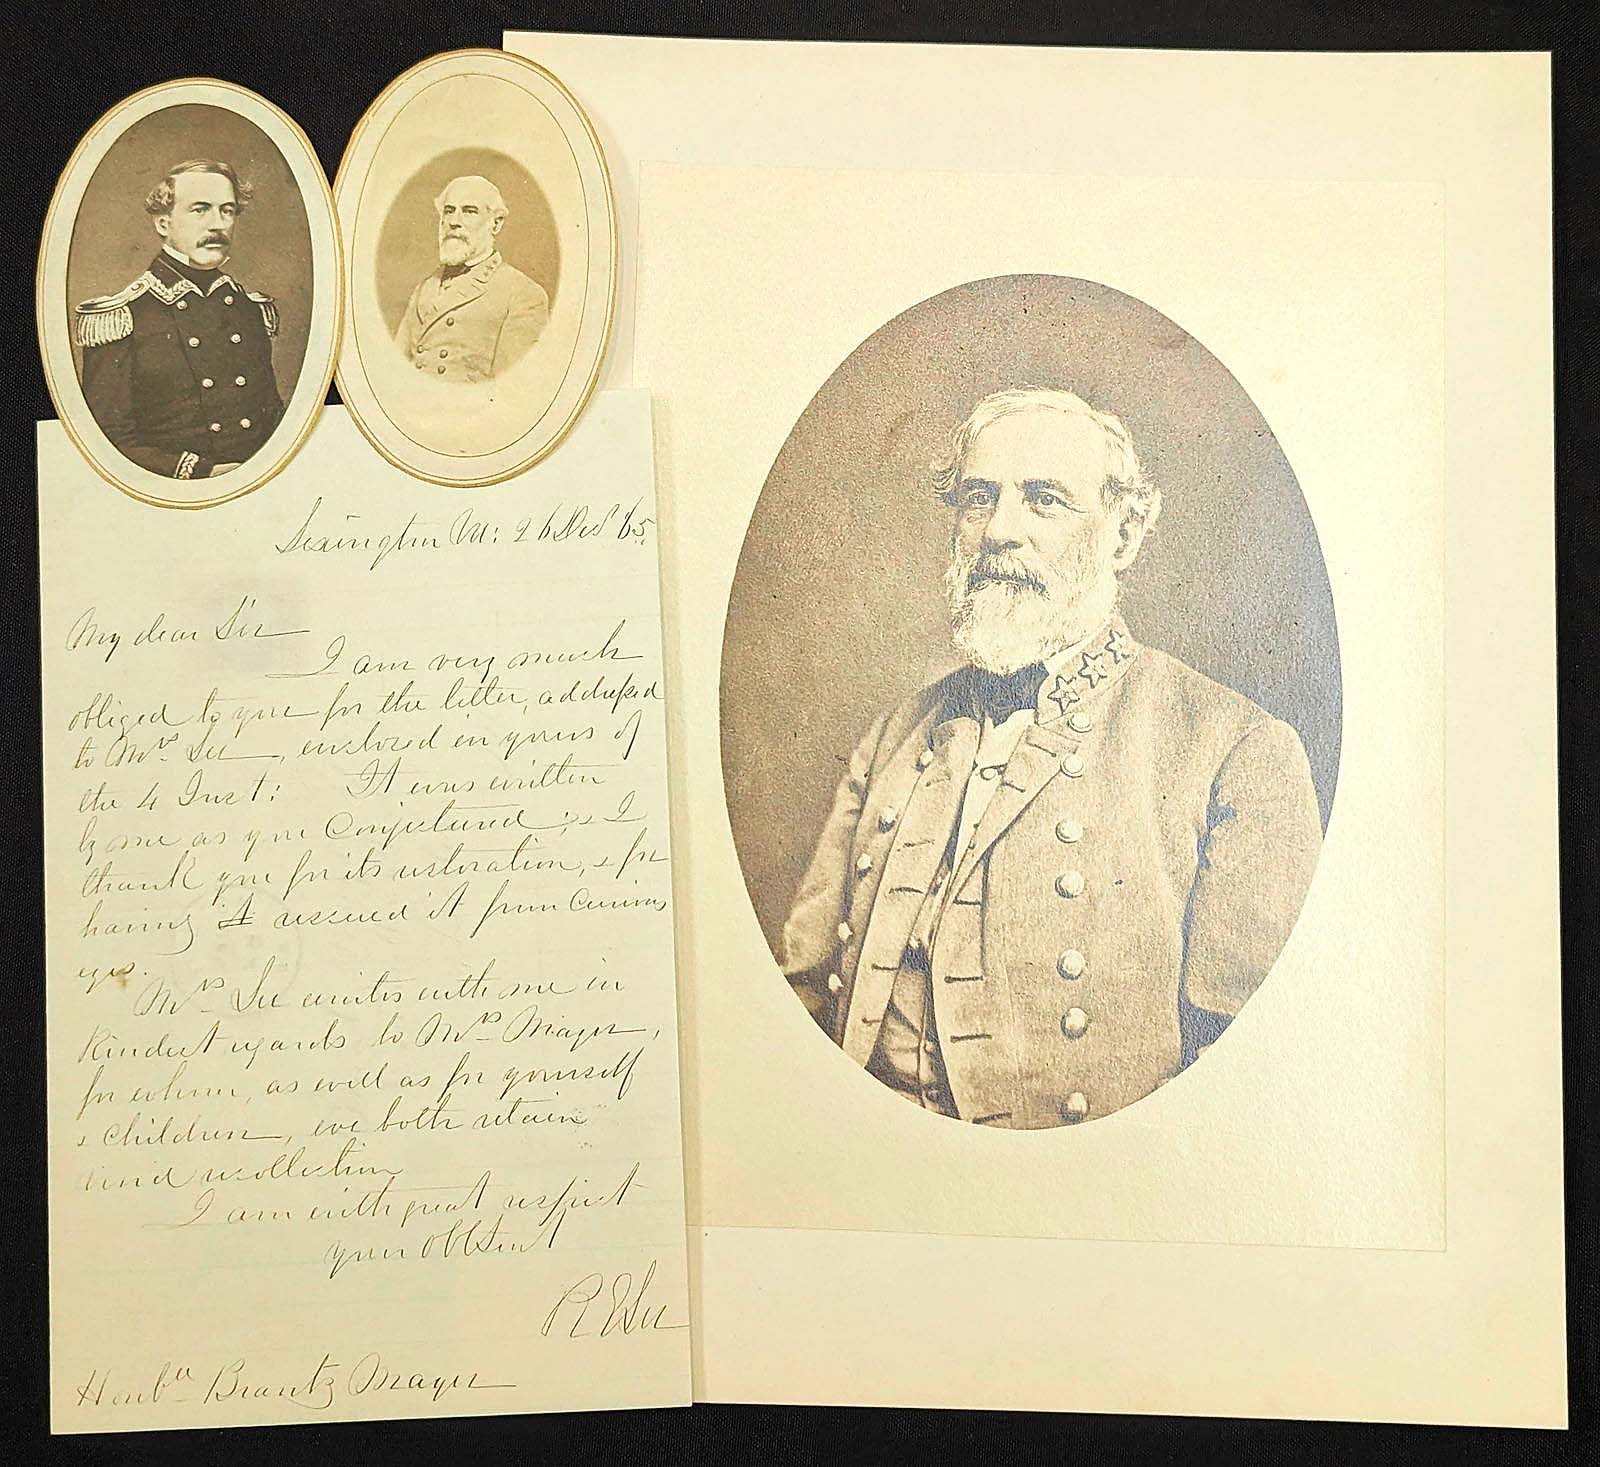 Lexington Va: 26 Dec 65.
My dear Sir
I am very much
obliged to you for the letter, addressed
to Mrs. Lee, enclosed in yours of
the 4 Inst: It was written
by me as you Conjectured; & I
thank you for its restoration, & for
having it rescued it from Curious
eyes.
Mrs Lee unites with me in
Kindest regards to Mrs Mayer,
for whom, as well as for yourself
& children, we both retain
kind recollection
I am with great respect
your Obt Servt
R E Lee
Honble Brantz Mayer